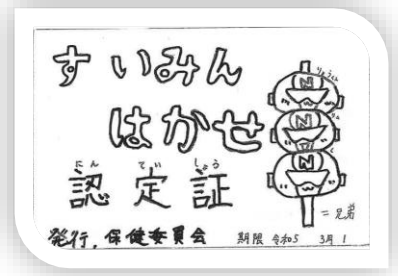 すいみん
はかせ
にん てい しょう
認定証
発行,保健委員会 期限 令和5 3月1
N
N
N
=兄弟